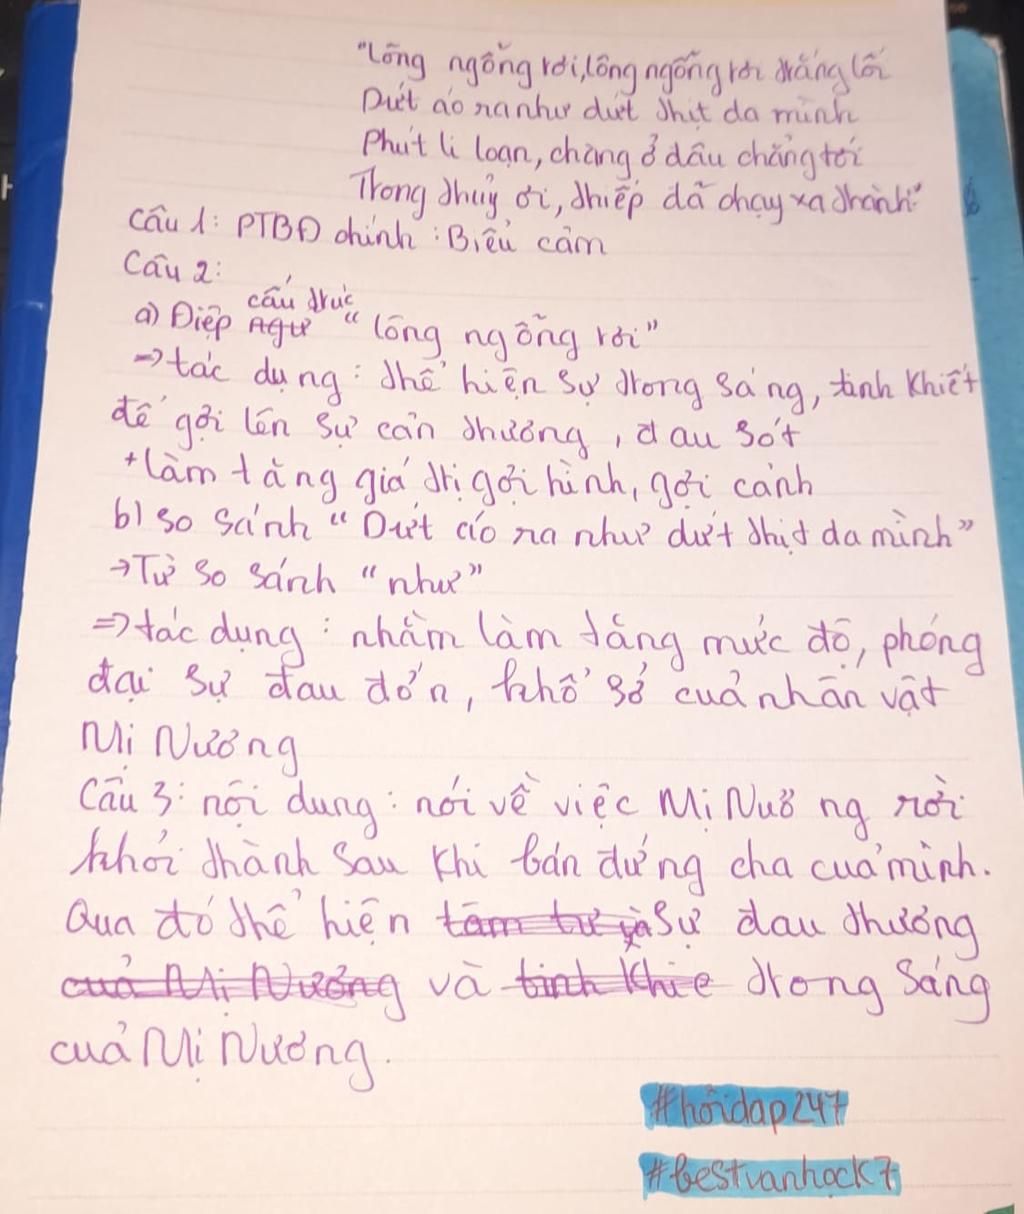 "Lông ngỗng rơi, lông ngỗng rơi trắng lối
Dứt áo ra như dứt thịt da mình
Phút li loạn, chàng ở đâu chẳng tới
Trọng Thuỷ ơi, thiếp đã chạy xa thành"
Câu 1: PTBĐ chính: Biểu cảm
Câu 2:
cấu trúc
a) Điệp ngữ "lông ngỗng rơi"
→ tác dụng: thể hiện sự trong sáng, tinh khiết
để gợi lên sự cản thương, đau sót
+ làm tăng giá trị gợi hình, gợi cảnh
b) so sánh "Dứt áo ra như dứt thịt da mình"
→ Từ so sánh "như"
⇒ tác dụng: nhằm làm tăng mức độ, phóng
đại sự đau đớn, khổ sở của nhân vật
Mị Nương
Câu 3: nội dung: nói về việc Mị Nương rời
khỏi thành sau khi bán đứng cha của mình.
Qua đó thể hiện tâm tư và sự đau thương
của Mị Nương và tinh khiế trong sáng
của Mị Nương.
#hỏidap247
#bestvanhock7